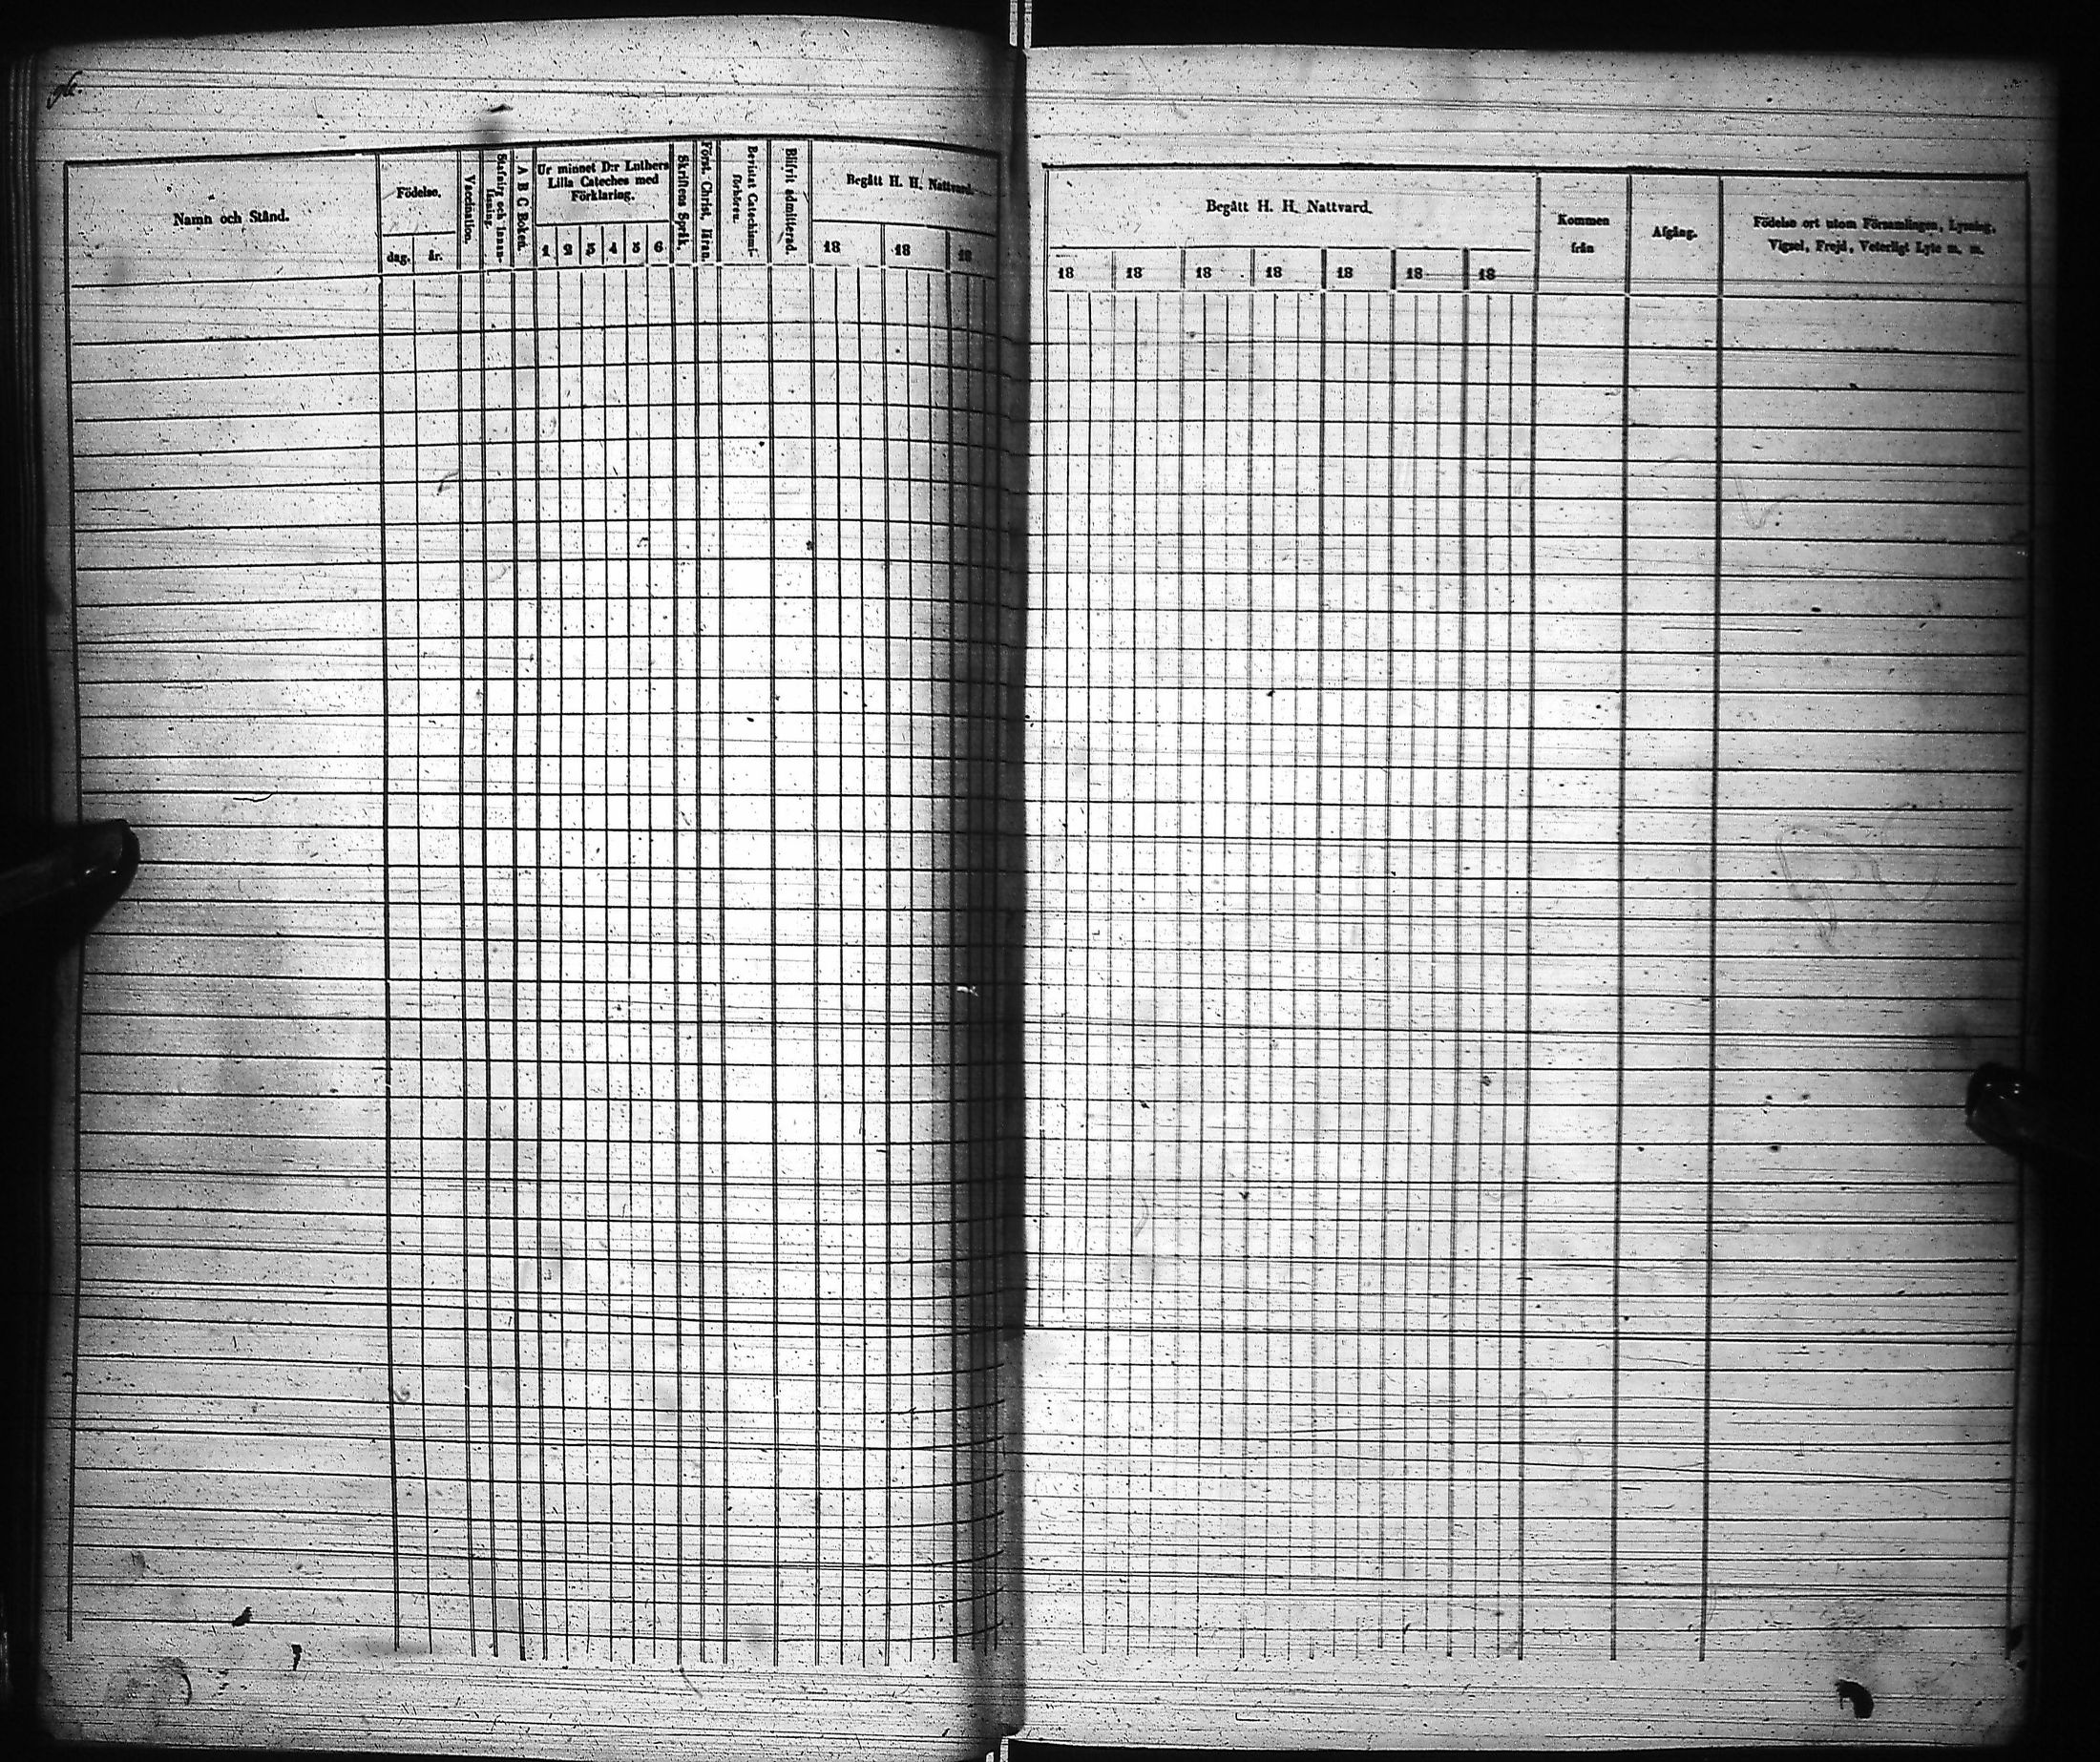 Namn och Stånd.
Födelse,
dag.
år.
Vaccination.
Stafning och Innan-
läsning.
A B C Boken.
Ur minnet D:r Luthers
Lilla Cateches med
Förklaring.
1 2 3 4 5 6
Skriftens Språk.
Först. Christ. läran.
Bevistat Catechismi-
förhören.
Blifvit admitterad.
Begått H. H. Nattvard.
18 18 18
Begått H. H. Nattvard.
18 18 18 18 18 18 18
Kommen
från
Afgång.
Födelse ort utom Församlingen, Lysning,
Vigsel, Frejd, Veterligt Lyte m. m.